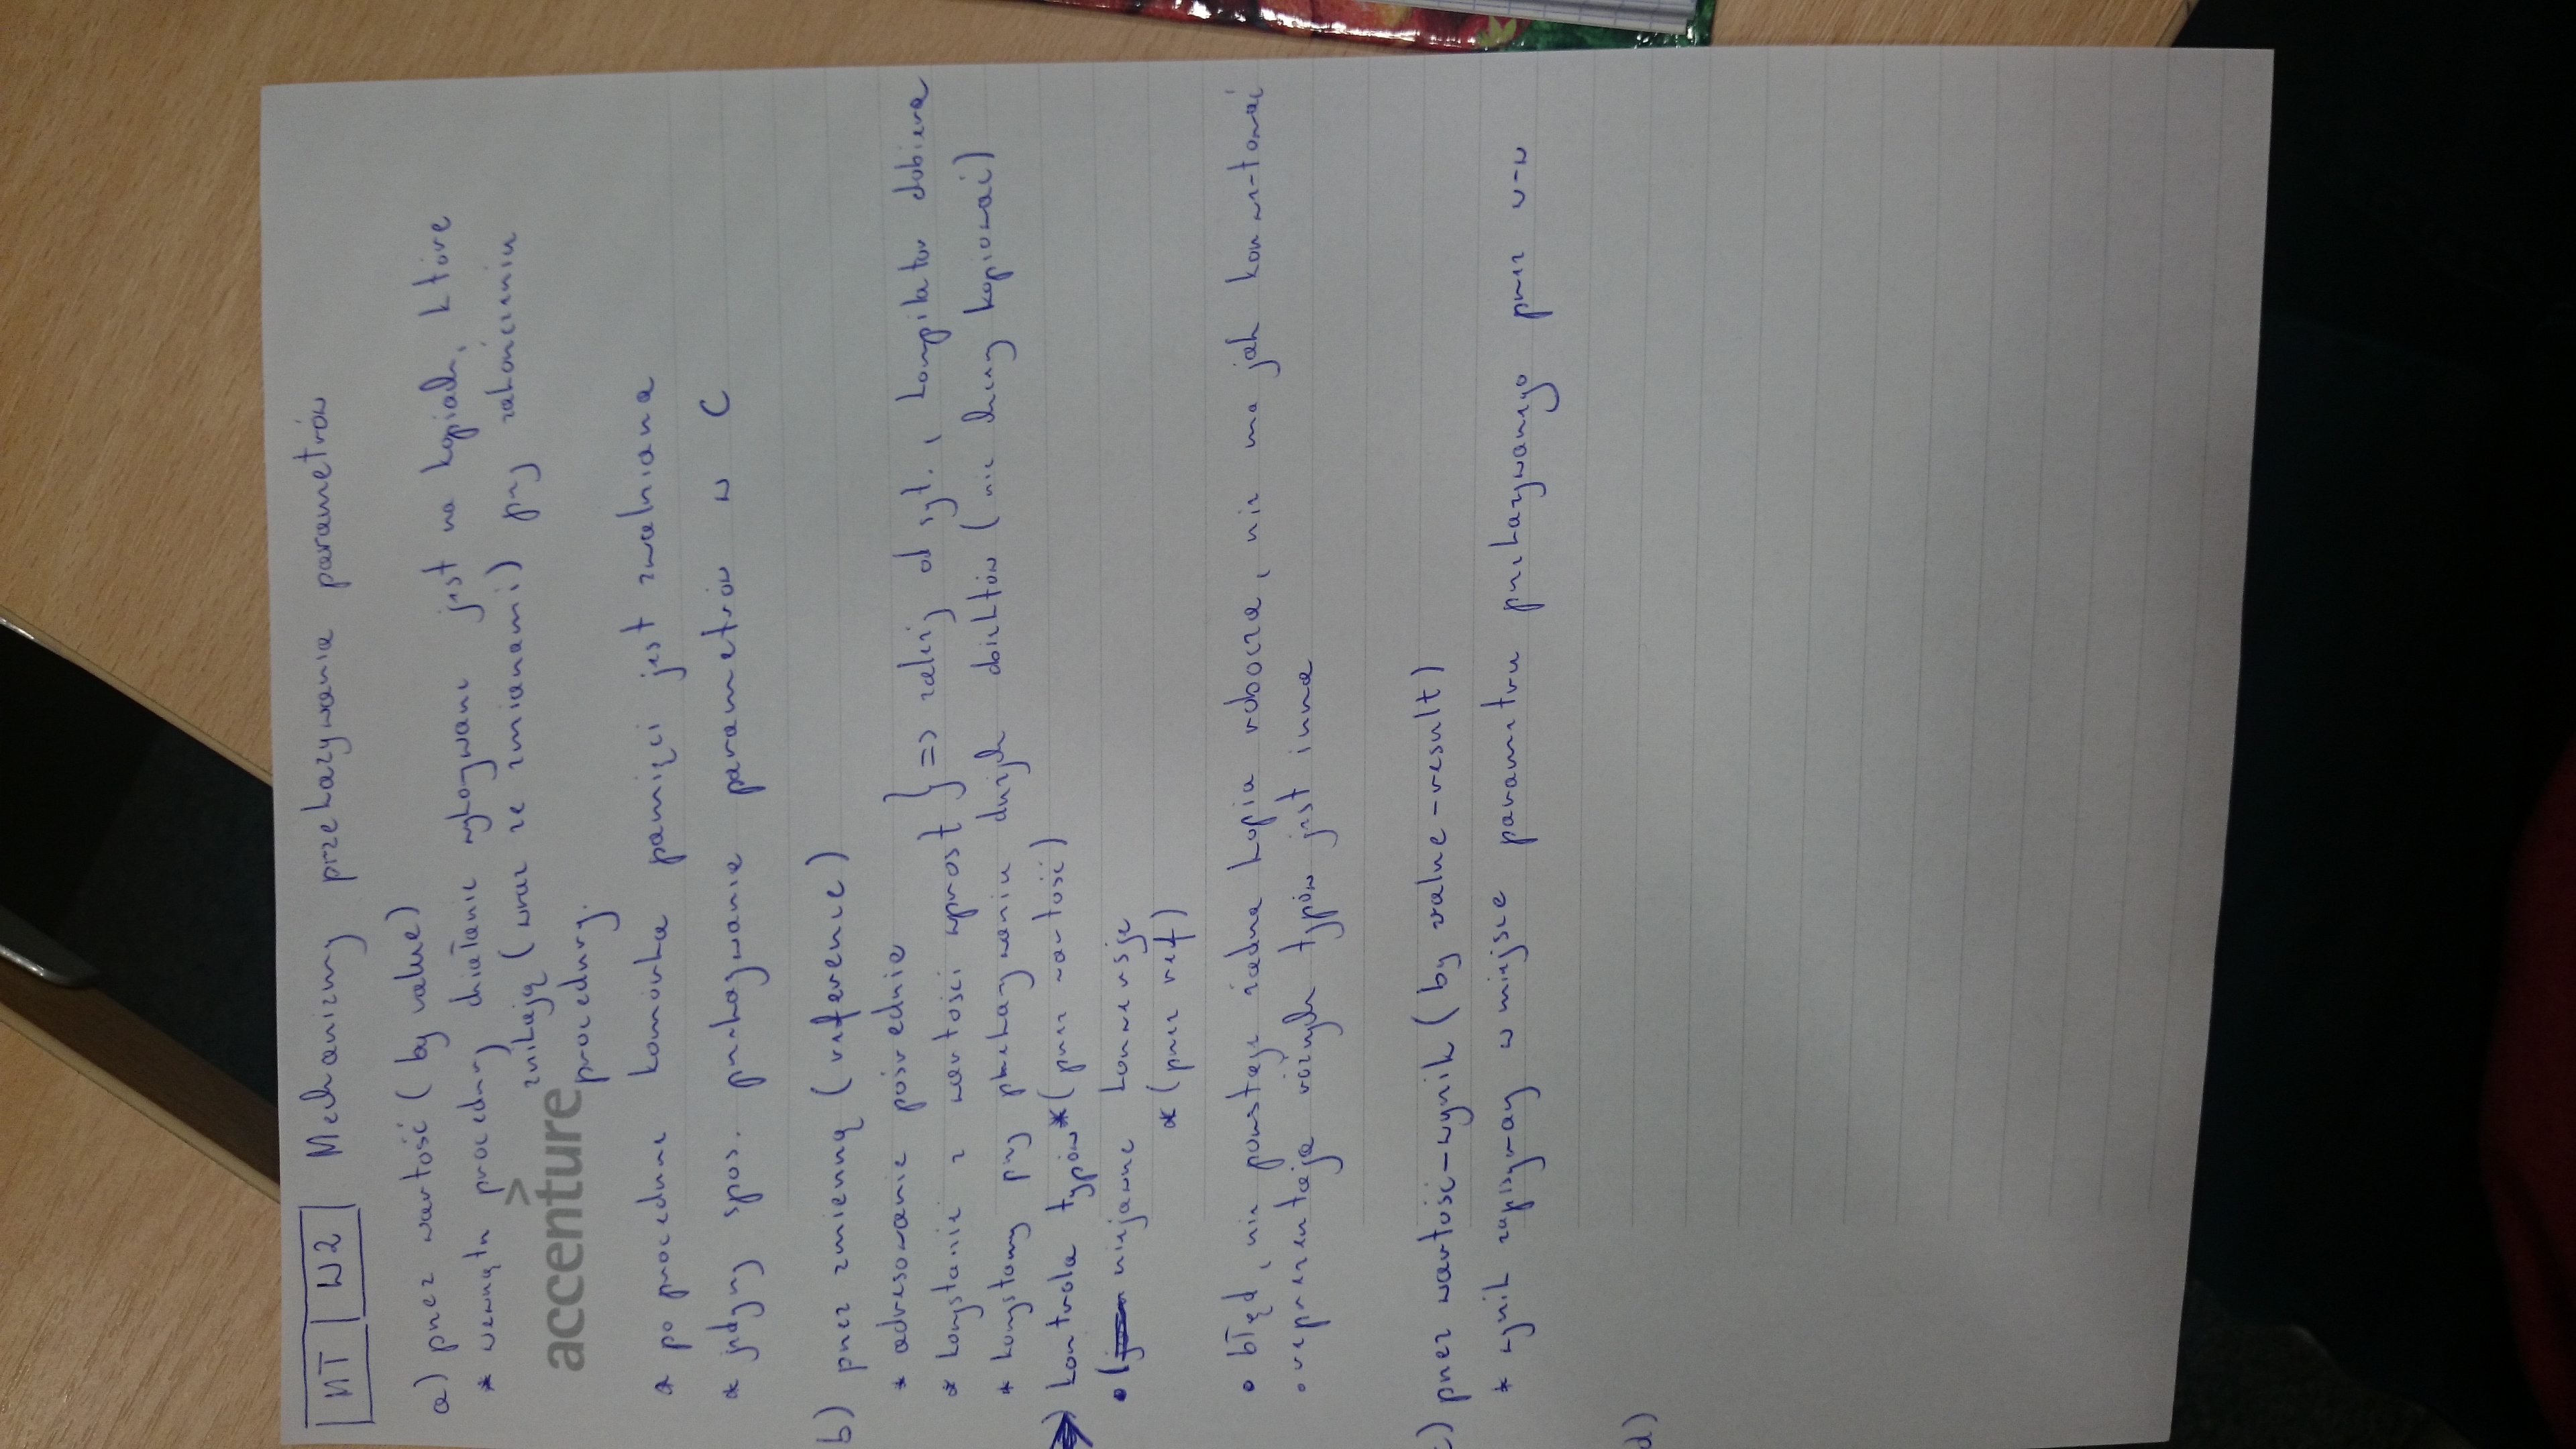 MT W2 Mechanizmy przekazywania parametrów
a) przez wartość (by value)
* wewnątrz procedury działanie wykonywane jest na kopiach, które
znikają (wraz ze zmianami) przy zakończeniu
>
accenture
procedury.
* po procedurze komórka pamięci jest zwalniana
* jedyny spos. przekazywania parametrów w C
b) przez zmienną (reference)
* adresowanie pośrednie
* korzystanie z wartości wprost } => zależy od syt., kompilator dobiera
* korzystamy przy przekazywaniu dużych obiektów (nie chcemy kopiować)
kontrola typów * (przez wartość)
• niejawne konwersje
* (przez ref)
• błąd, nie powstaje żadna kopia robocza, nie ma jak konwertować
• reprezentacja różnych typów jest inna
c) przez wartość-wynik (by value-result)
* wynik zapisywany w miejsce parametru przekazywanego przez w-w
d)